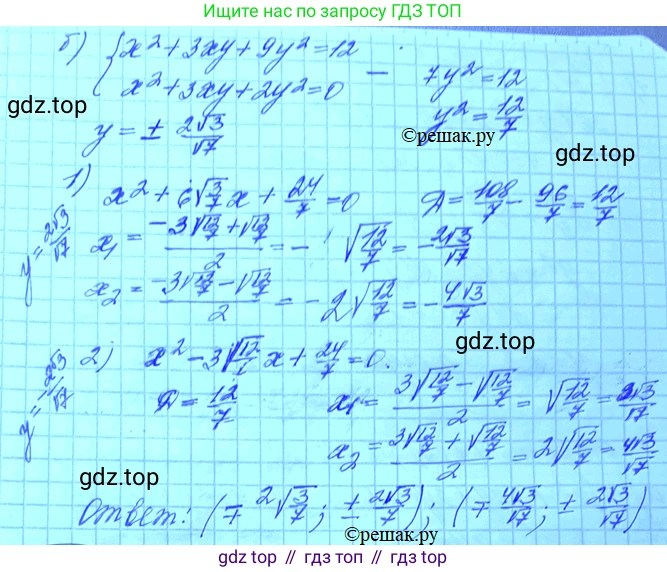 Ищите нас по запросу ГДЗ ТОП
б) { x² + 3xy + 9y² = 12
x² + 3xy + 2y² = 0
— 7y² = 12
y² = 12/7
gdz.top
©решак.ру
y = ± 2√3/√7
gdz.top
1) x² + 6√(3/7)x + 24/7 = 0
Д = 108/7 - 96/7 = 12/7
y = 2√3/√7
x₁ = (-3√(12/7) + √(12/7))/2 = - √(12/7) = - 2√3/√7
x₂ = (-3√(12/7) - √(12/7))/2 = - 2√(12/7) = - 4√3/7
y = -2√3/√7
2) x² - 3√(12/7)x + 24/7 = 0.
Д = 12/7
x₁ = (3√(12/7) - √(12/7))/2 = √(12/7) = 2√3/√7
x₂ = (3√(12/7) + √(12/7))/2 = 2√(12/7) = 4√3/√7
gdz.top
gdz.top
Ответ: (∓ 2√(3/7); ± 2√3/√7); (∓ 4√3/√7; ± 2√3/√7)
©решак.ру
gdz.top // гдз топ // gdz.top // гдз топ